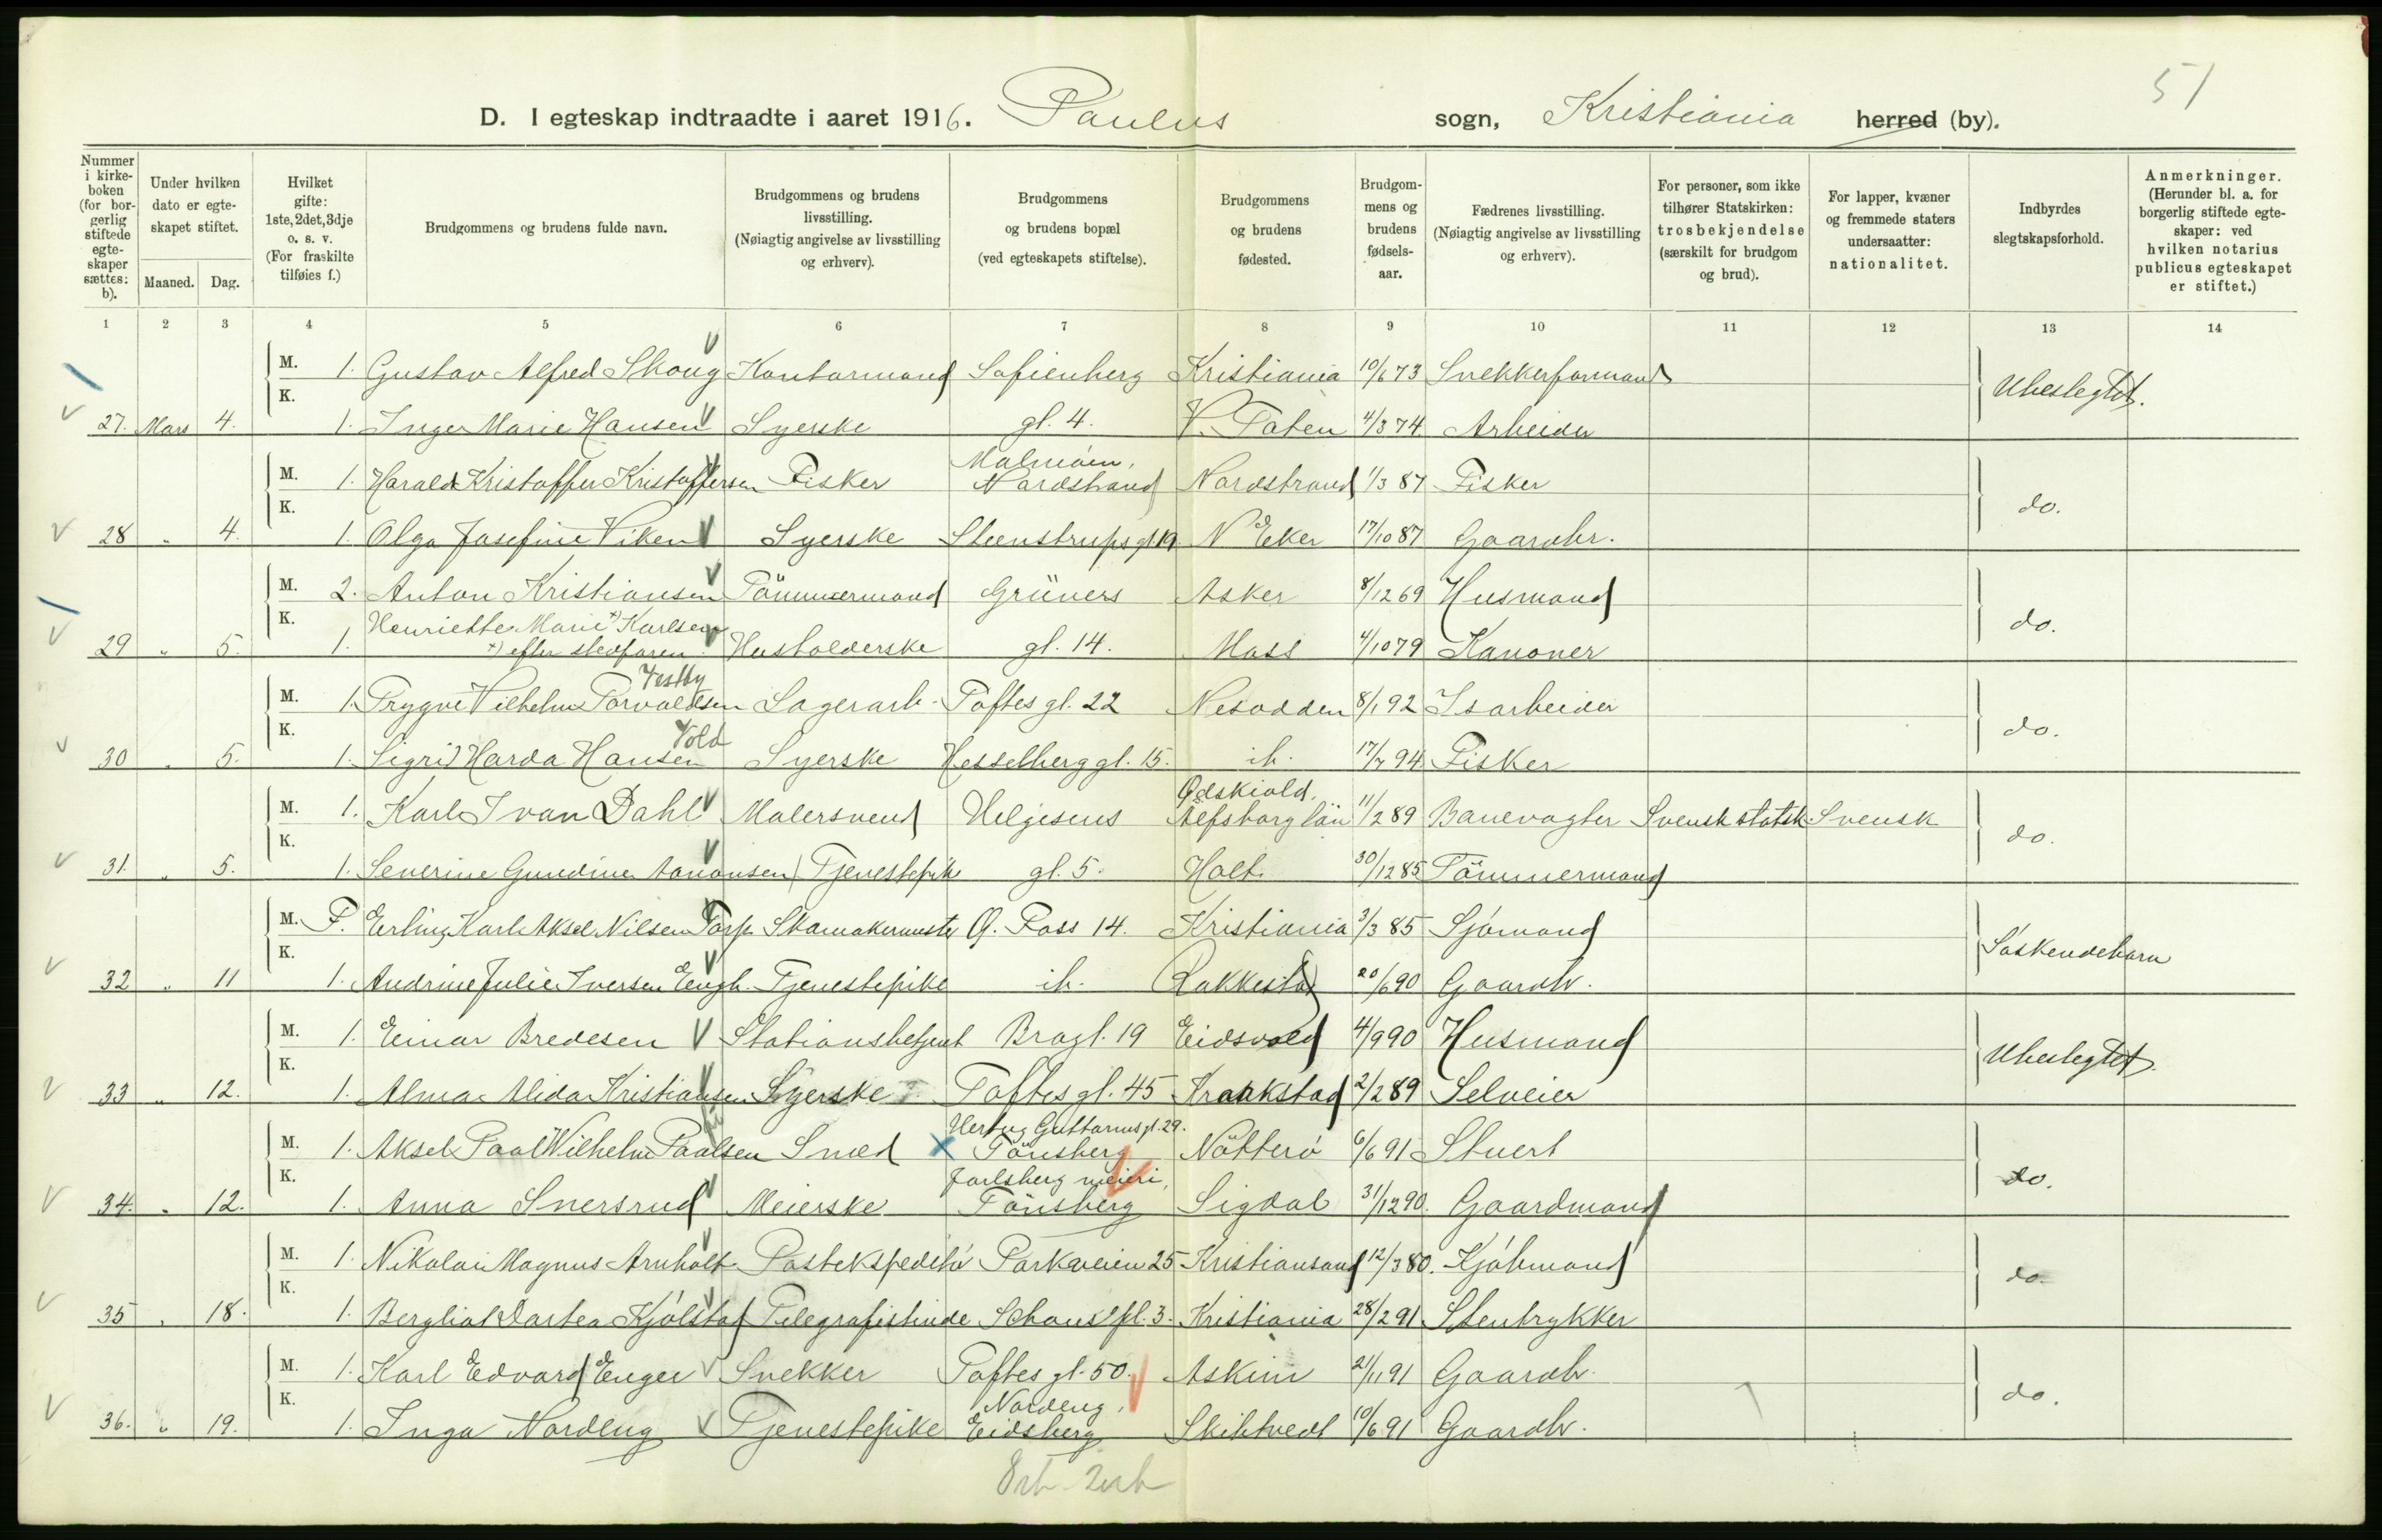 51
D. I egteskap indtraadte i aaret 1916. Paulus sogn, Kristiania herred (by).
Nummer i kirke-boken (for bor-gerlig stiftede egte-skaper sættes: b).
Under hvilken dato er egte-skapet stiftet.
Maaned. Dag.
Hvilket gifte: 1ste, 2det, 3dje o. s. v. (For fraskilte tilføies f.)
Brudgommens og brudens fulde navn.
Brudgommens og brudens livsstilling. (Nøiagtig angivelse av livsstilling og erhverv).
Brudgommens og brudens bopæl (ved egteskapets stiftelse).
Brudgommens og brudens fødested.
Brudgom-mens og brudens fødsels-aar.
Fædrenes livsstilling. (Nøiagtig angivelse av livsstilling og erhverv).
For personer, som ikke tilhører Statskirken: trosbekjendelse (særskilt for brudgom og brud).
For lapper, kvæner og fremmede staters undersaatter: nationalitet.
Indbyrdes slegtskapsforhold.
Anmerkninger. (Herunder bl. a. for borgerlig stiftede egte-skaper: ved hvilken notarius publicus egteskapet er stiftet.)
1 2 3 4 5 6 7 8 9 10 11 12 13 14
M. 1. Gustav Alfred Skoug Kontormand Sofienberg Kristiania 10/6 73 Snekkerformand Ubeslegtet.
K. 27. Mars 4. 1. Inger Marie Hansen Syerske gt. 4. V. Toten 4/3 74 Arbeider
M. 1. Harald Kristoffer Kristoffersen Fisker Malmöen, Nordstrand Nordstrand 1/3 87 Fisker do.
K. 28 " 4. 1. Olga Josefine Viken Syerske Steenstrups gt. 19. N Eker 17/10 87 Gaardbr.
M. 2. Anton Kristiansen Tömmermand Grüners Asker 8/12 69 Husmand do.
K. 29 " 5. 1. Henriette Marie +) Karlsen +) efter stedfaren. Husholderske gt. 14. Moss 4/10 79 Kanoner
M. 1. Trygve Vilhelm Torvaldsen Vestby Lagerarb. Toftes gt. 22 Nesodden 8/1 92 Isarbeider do.
K. 30 " 5. 1. Sigrid Harda Hansen Vold Syerske Hesselberg gt. 15. ib. 17/7 94 Fisker
M. 1. Karl Ivan Dahl Malersvend Helgesens Ödskiöld, Ælfsborg län 11/2 89 Banevogter Svensk statsk. Svensk do.
K. 31. " 5. 1. Severine Gundine Aanonsen Tjenestepike gt. 5. Holt. 30/12 85 Tömmermand
M. F. Erling Karl Aksel Nilsen Torp Skomakermester O. Foss 14. Kristiania 3/3 85 Sjömand Söskendebarn
K. 32 " 11 1. Andrine Julie Iversen Engh. Tjenestepike ib. Rakkestad 20/6 90 Gaardbr.
M. 1. Einar Bredesen Stationsbetjent Brogt. 19 Eidsvold 4/9 90 Husmand Ubeslegtet.
K. 33 " 12. 1. Alma Alida Kristiansen Syerske Toftes gt. 45 Kraakstad 2/2 89 Selveier
M. 1. Aksel Paal Wilhelm Paalsen Smed Hertug Guttorms gt. 29. Tönsberg Nötterö 6/6 91 Stuert do.
K. 34. " 12. 1. Anna Snersrud Meierske Jarlsberg meieri, Tönsberg Sigdal 31/12 90. Gaardmand
M. 1. Nikolai Magnus Arnholt Postekspeditör Parkveien 25 Kristiansand 12/3 80. Kjöbmand do.
K. 35 " 18. 1. Bergliot Dortea Kjölstad Telegrafistinde Schous pl. 3. Kristiania 28/2 91 Stentrykker
M. 1. Karl Edvard Enger Snekker Toftes gt. 50. Askim 21/11 91 Gaardb. do.
K. 36. " 19. 1. Inga Nordeng Tjenestepike Nordeng, Eidsberg Skibtvedt 10/6 91 Gaardbr.